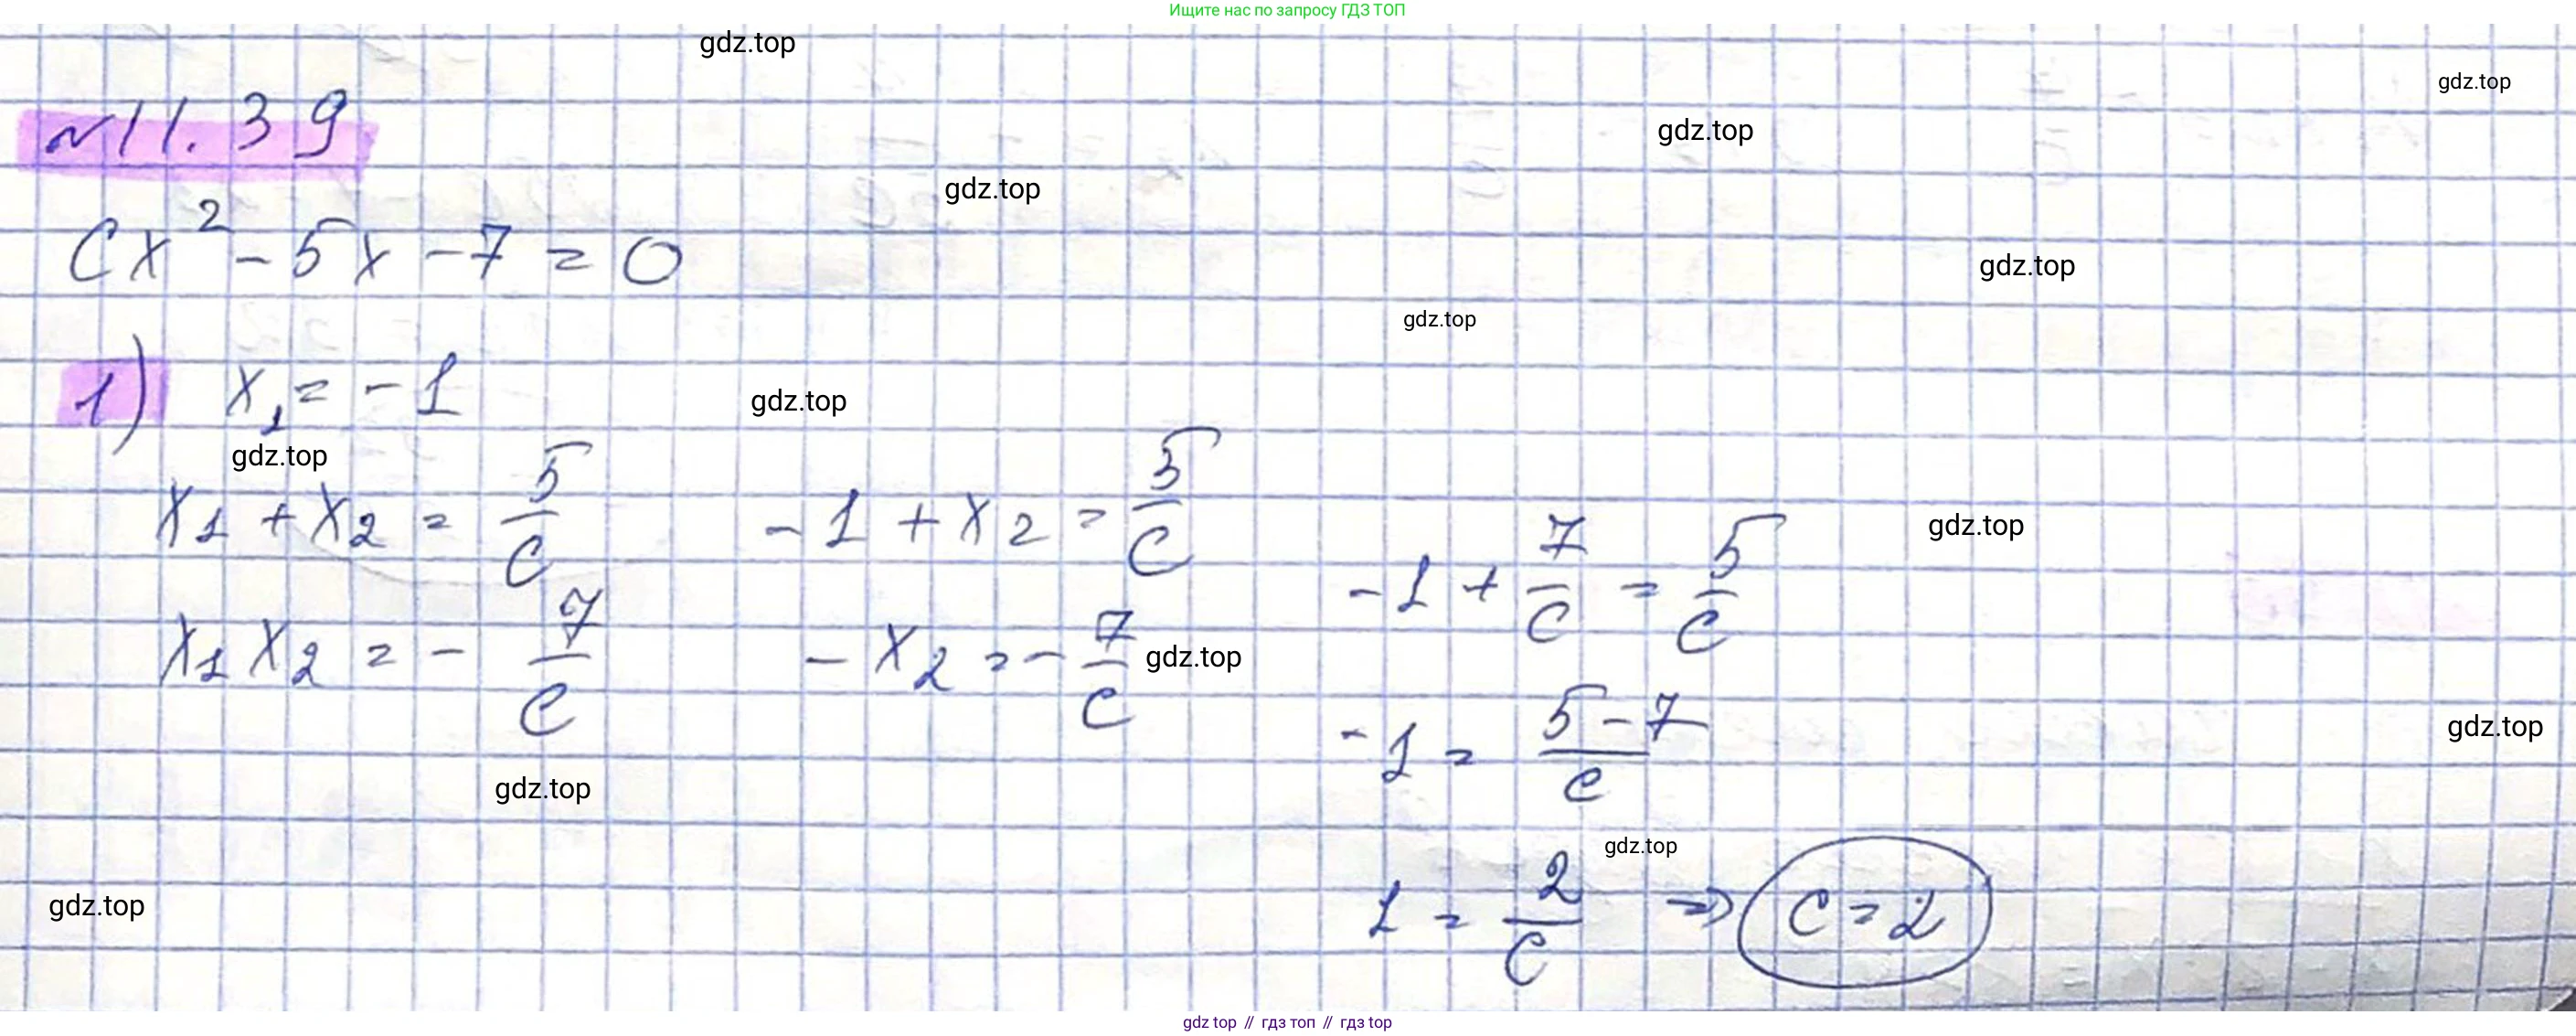 Ищите нас по запросу ГДЗ ТОП
gdz.top
gdz.top
№11.39
gdz.top
gdz.top
Cx² - 5x - 7 = 0
gdz.top
gdz.top
1) x₁ = -1
gdz.top
gdz.top
x₁ + x₂ = 5/C
-1 + x₂ = 5/C
gdz.top
x₁ x₂ = - 7/C
- x₂ = - 7/C
gdz.top
-1 + 7/C = 5/C
-1 = (5-7)/C
gdz.top
gdz.top
gdz.top
gdz.top
1 = 2/C ⇒ C = 2
gdz top // гдз топ // гдз top